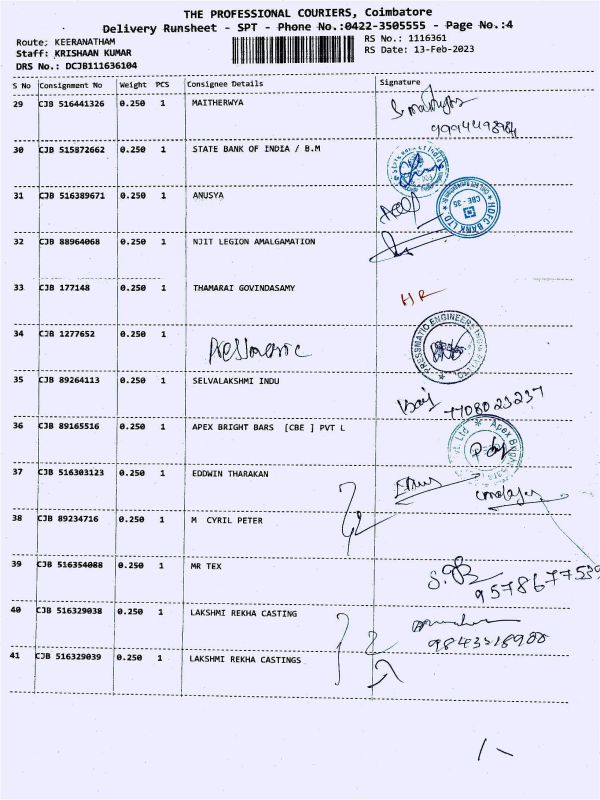 THE PROFESSIONAL COURIERS, Coimbatore
Delivery Runsheet - SPT - Phone No.:0422-3505555 - Page No.:4
Route: KEERANATHAM RS No.: 1116361
Staff: KRISHAAN KUMAR RS Date: 13-Feb-2023
DRS No.: DCJB111636104
S No Consignment No Weight PCS Consignee Details Signature
29 CJB 516441326 0.250 1 MAITHERWYA
30 CJB 515872662 0.250 1 STATE BANK OF INDIA / B.M
31 CJB 516389671 0.250 1 ANUSYA
HDFC BANK LTD
CBE - 35
32 CJB 88964068 0.250 1 NJIT LEGION AMALGAMATION
33 CJB 177148 0.250 1 THAMARAI GOVINDASAMY HR
34 CJB 1277652 0.250 1
PRESSMATIC ENGINEERS INDIA PVT LTD
35 CJB 89264113 0.250 1 SELVALAKSHMI INDU
7708023237
36 CJB 89165516 0.250 1 APEX BRIGHT BARS [CBE ] PVT L
37 CJB 516303123 0.250 1 EDDWIN THARAKAN
38 CJB 89234716 0.250 1 M CYRIL PETER
39 CJB 516354088 0.250 1 MR TEX
9578677539
40 CJB 516329038 0.250 1 LAKSHMI REKHA CASTING
41 CJB 516329039 0.250 1 LAKSHMI REKHA CASTINGS